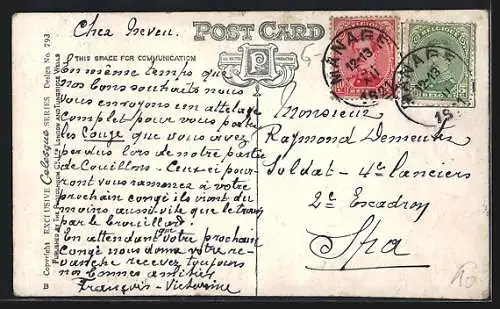 Cher Neveu.
POST CARD
THIS SPACE FOR COMMUNICATION
En même temps que
nos bons souhaits nous
vous envoyons un attelage
complet pour vous partir
les Couze que vous avez
perdus lors de notre partie
de Couillons - Ceux-ci pour-
ront vous ramener à votre
prochain congé ils vont du
moins aussi vite que le tram
par le brouillard
En attendant votre prochain
Congé nous donne votre re-
vanche recevez toujours
nos bonnes amitiés
François - Victorine
MANAGE
12-13
1921
MANAGE
12-13
BELGIQUE
Monsieur
Raymond Demeuter
Soldat - 4e Lanciers
2e Escadron
Spa
Copyright EXCLUSIVE Celesque SERIES Design No. 793
B